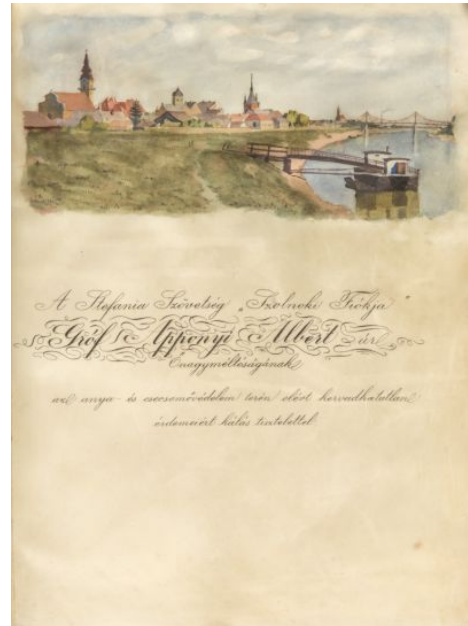 A Stefania Szövetség „Szolnoki Fiókja"
Gróf Apponyi Albert úr
Őnagyméltóságának
az anya- és csecsemővédelem terén elért hervadhatatlan
érdemeiért hálás tisztelettel